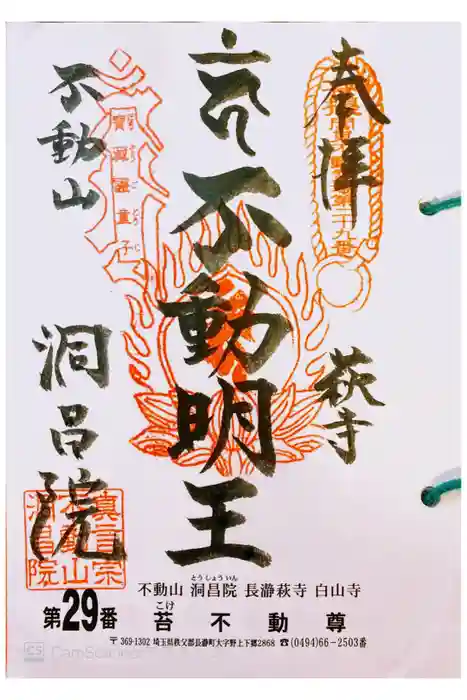 奉拝
萩寺
不動明王
不動山
洞昌院
寶眞靈童子
眞言宗
不動山
洞昌院
とうしょういん
不動山 洞昌院 長瀞萩寺 白山寺
こけ
第29番 苔不動尊
〒369-1302 埼玉県秩父郡長瀞町大字野上下郷2868 ☎(0494)66-2503番
CS CamScanner